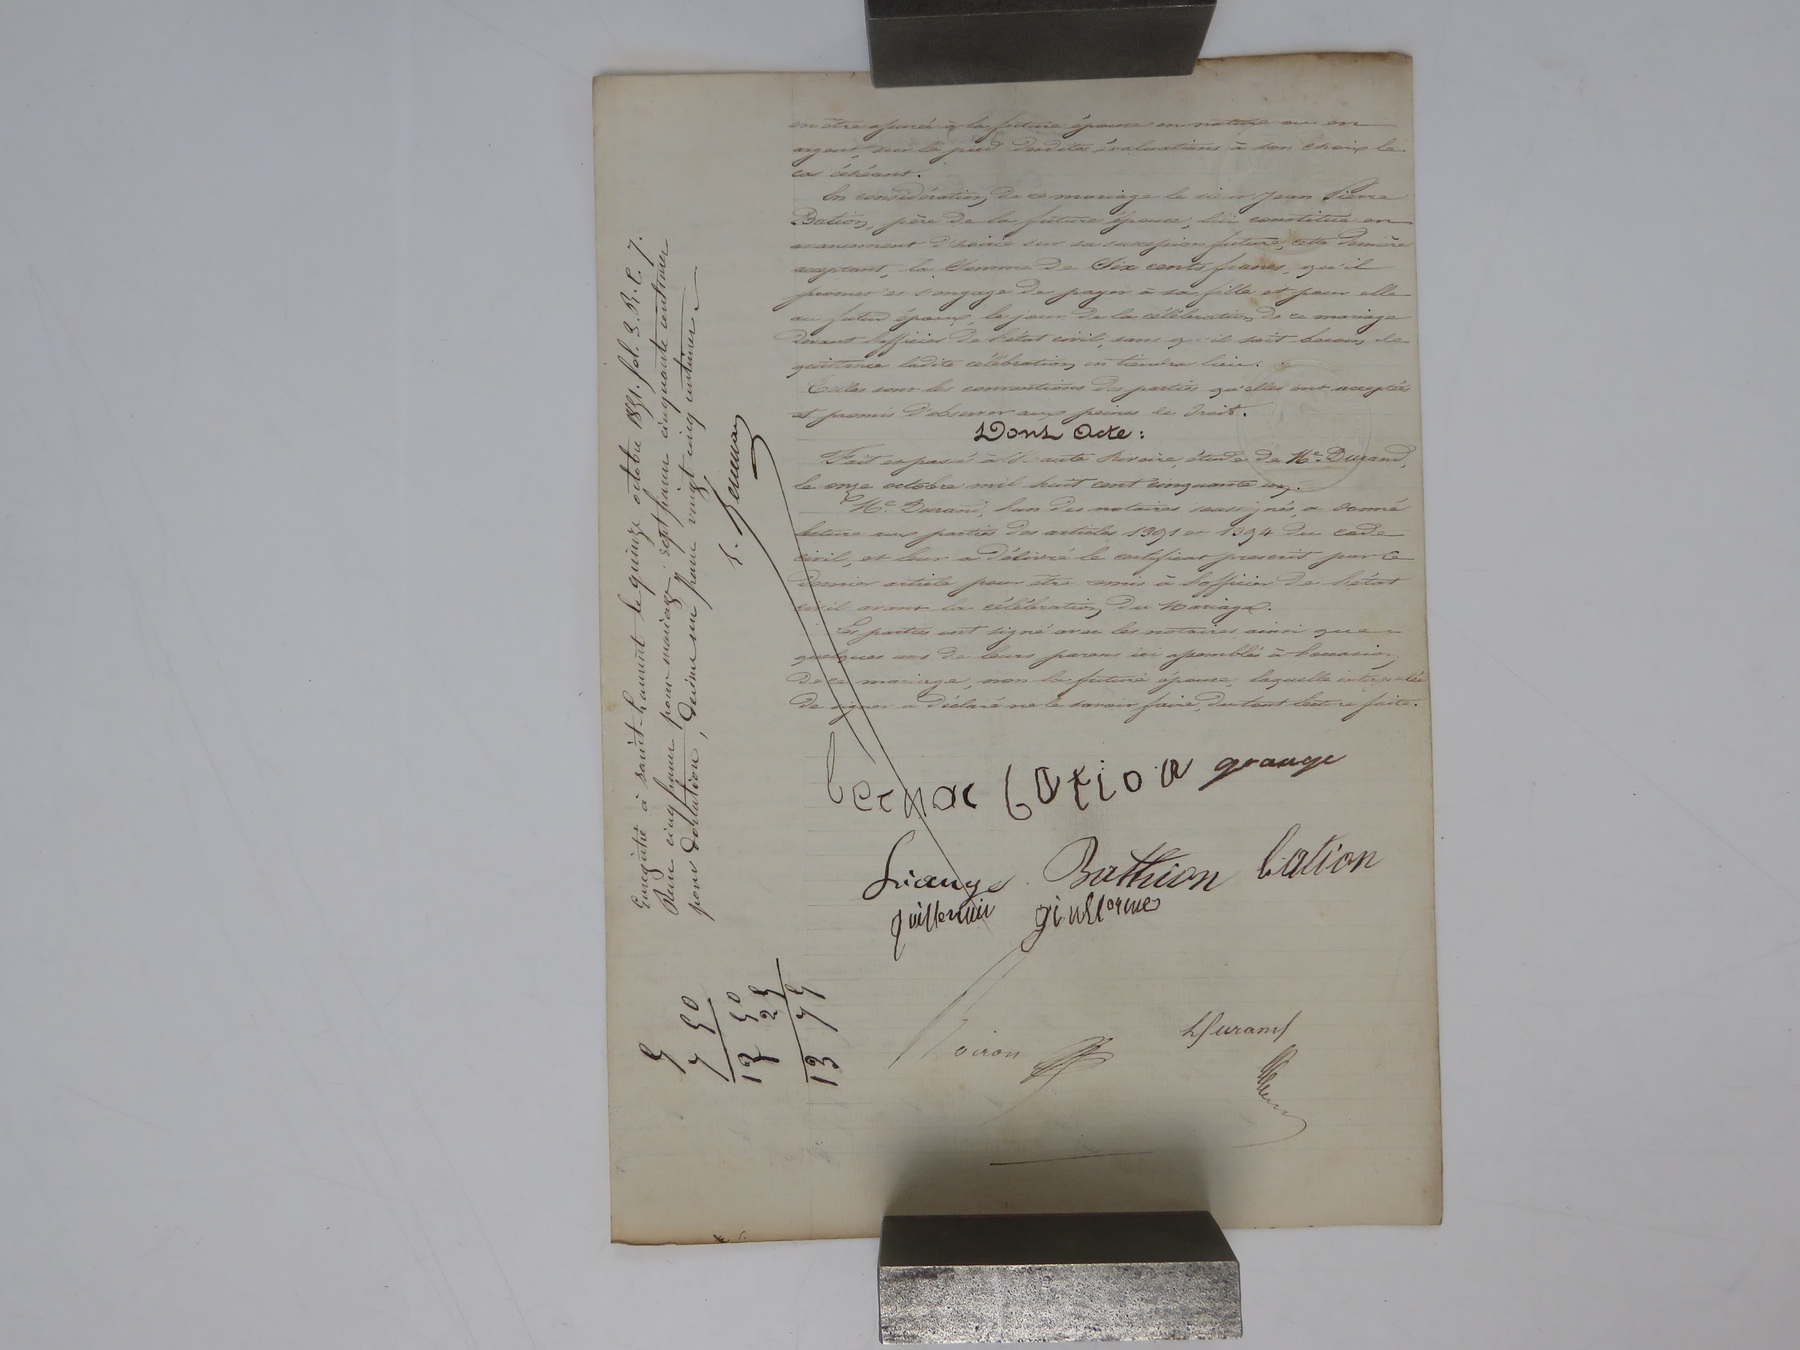 en être assurée à la future épouse en nature ou en
argent, sur le pied desdites évaluations à son choix le
cas échéant.
En considération de ce mariage le sieur Jean Pierre
Bation, père de la future épouse, lui constitue en
avancement d'hoirie sur sa succession future, cette dernière
acceptant, la Somme de Six cents francs, qu'il
promet et s'engage de payer à sa fille et pour elle
au futur époux, le jour de la célébration de ce mariage
devant l'officier de l'état civil, sans qu'il soit besoin de
quittance ladite célébration en tiendra lieu.
Telles sont les conventions des parties qu'elles ont acceptées
et promis d'observer aux peines de droit.
Dont Acte :
Fait et passé à Ste Rivoire, étude de Me Durand,
le onze octobre mil huit cent cinquante un.
Me Durand, l'un des notaires soussignés, a donné
lecture aux parties des articles 1391 et 1394 du code
civil, et leur a délivré le certificat prescrit par ce
dernier article pour être remis à l'officier de l'état
civil avant la célébration du Mariage.
Les parties ont signé avec les notaires ainsi que
quelques uns de leurs parens ici assemblés à l'occasion
de ce mariage, non la future épouse, laquelle
de signer a déclaré ne le savoir faire, du tout lecture faite.
bation grange
Grange Bathion bation
guillermin
Voiron Durand
Enregistré à saint-Laurent le quinze octobre 1851. fol. 3. R. C. 7.
Reçu cinq francs pour mariage; sept francs cinquante centimes
pour dotation, décime un franc vingt cinq centimes.
5
7 50
12 50
1 25
13 75